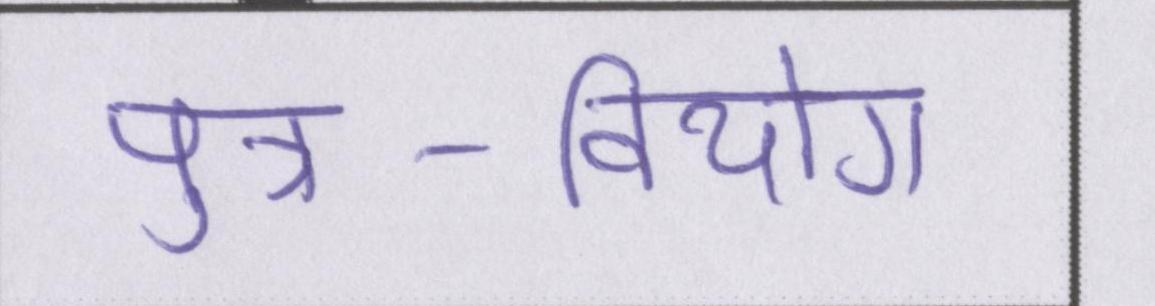 पुत्र - वियोग